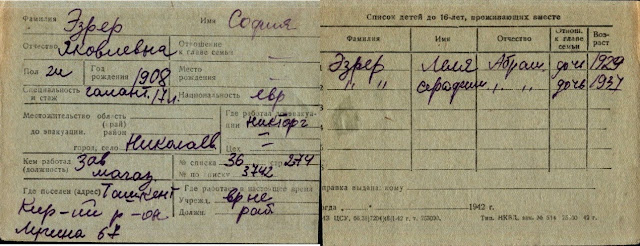 Фамилия Эзрер Имя София
Отчество Яковлевна Отношение к главе семьи
Пол ж Год рождения 1908 Место рождения
Специальность и стаж галант. 17 л. Национальность евр
Местожительство до эвакуации: область (край) район
город, село Николаев
Где работал до эвакуации Никторг
Цех —
Кем работал (должность) Зав магаз.
№ списка 36 274
№ по списку 3742
Где поселен (адрес) Ташкент
Кир-ий р-он
67
Где работает в настоящее время
Учрежд. вр не
Должн. раб
Список детей до 16-лет, проживающих вместе
Фамилия Имя Отчество Отнош. к главе семьи Возраст
Эзрер Леля Абрам. дочь 1929
" " " " дочь 1937
правка выдана кому
1942 г.